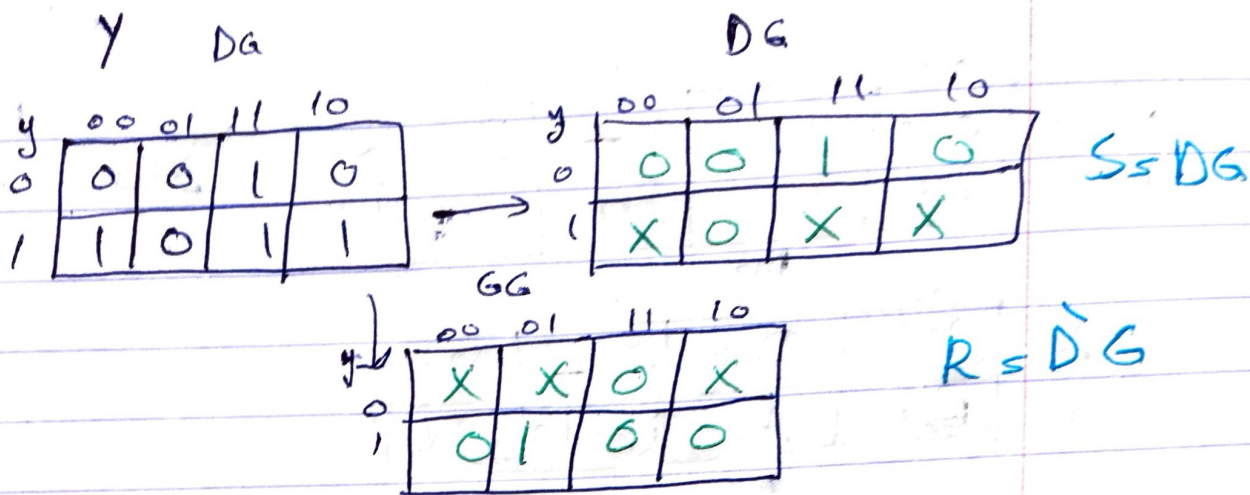 Y DG
y 00 01 11 10
0 0 0 1 0
1 1 0 1 1
DG
y 00 01 11 10
0 0 0 1 0
1 X 0 X X
S = DG
GG
y 00 01 11 10
0 X X 0 X
1 0 1 0 0
R = D̀ G